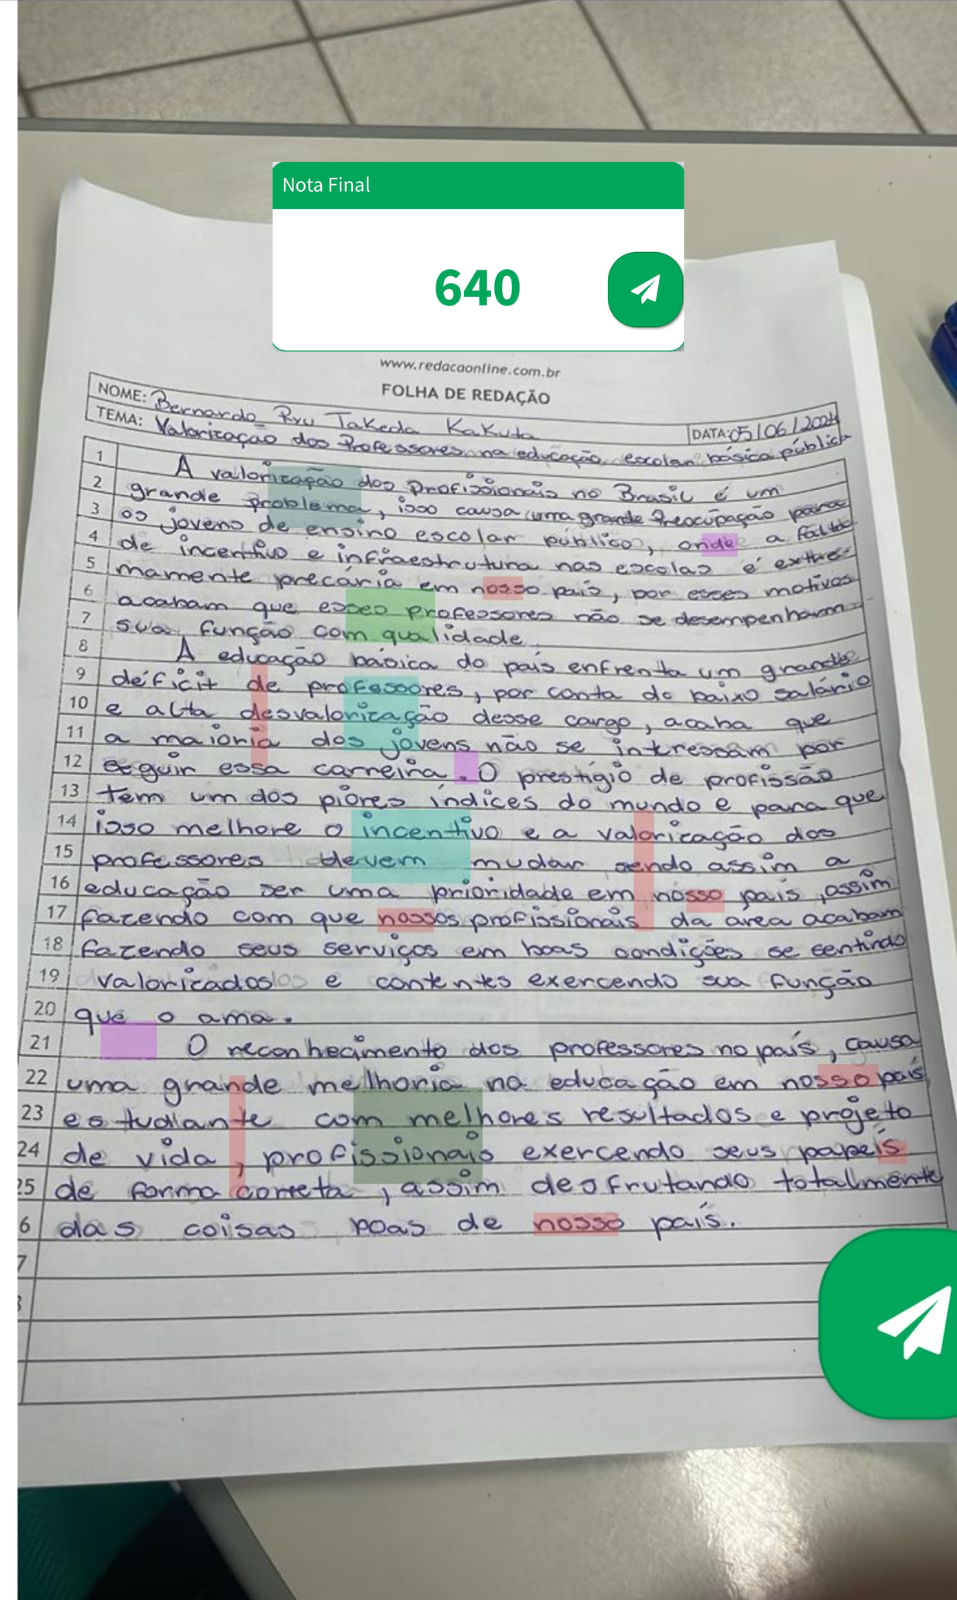 Nota Final
640
www.redacaonline.com.br
FOLHA DE REDAÇÃO
NOME: Bernardo Ryu Takeda Kakuta
DATA: 05/06/2024
TEMA: Valorização dos Professores na educação escolar básica pública
1 A valorização dos profissionais no Brasil é um
2 grande problema, isso causa uma grande preocupação para
3 os jovens de ensino escolar público, onde a falta
4 de incentivo e infraestrutura nas escolas é extre-
5 mamente precária em nosso país, por esses motivos
6 acabam que esses professores não se desempenham
7 sua função com qualidade.
8 A educação básica do país enfrenta um grande
9 déficit de professores, por conta do baixo salário
10 e alta desvalorização desse cargo, acaba que
11 a maioria dos jovens não se intressam por
12 seguir essa carreira. O prestígio de profissão
13 tem um dos piores índices do mundo e para que
14 isso melhore o incentivo e a valorização dos
15 professores devem mudar sendo assim a
16 educação ser uma prioridade em nosso país, assim
17 fazendo com que nossos profissionais da area acabam
18 fazendo seus serviços em boas condições se sentindo
19 valorizados e contentes exercendo sua função
20 que o ama.
21 O reconhecimento dos professores no país, causa
22 uma grande melhoria na educação em nosso país
23 estudiante com melhores resultados e projeto
24 de vida, profissionais exercendo seus papeís
25 de forma correta, assim desfrutando totalmente
6 das coisas boas de nosso país.
7